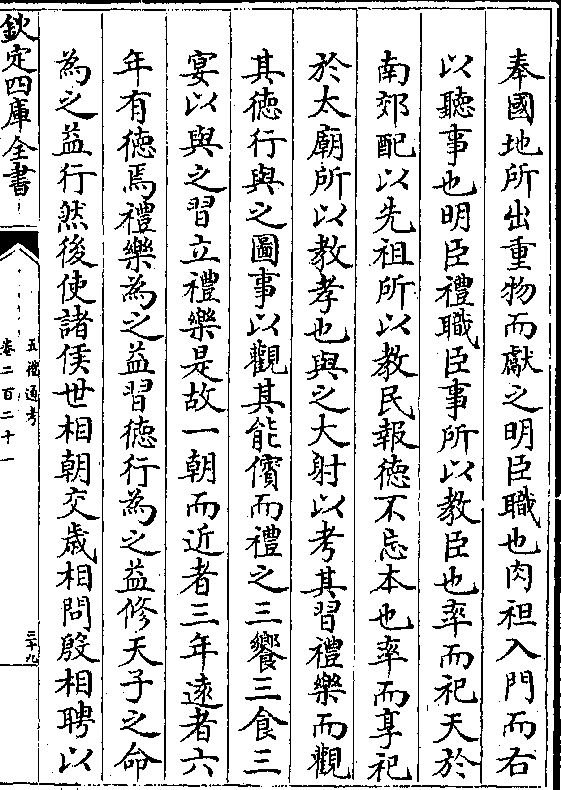 奉國地所出重物而獻之明臣職也肉袒入門而右
以聽事也明臣禮職臣事所以教臣也率而祀天於
南郊配以先祖所以教民報徳不忘本也率而享祀
於太廟所以教孝也與之大射以考其習禮樂而觀
其徳行與之圖事以觀其能儐而禮之三饗三食三
宴以與之習立禮樂是故一朝而近者三年逺者六
年有徳焉禮樂為之益習徳行為之益修天子之命
為之益行然後使諸侯世相朝交歳相問殷相聘以
欽定四庫全書
五禮通考
卷二百二十一
三十九